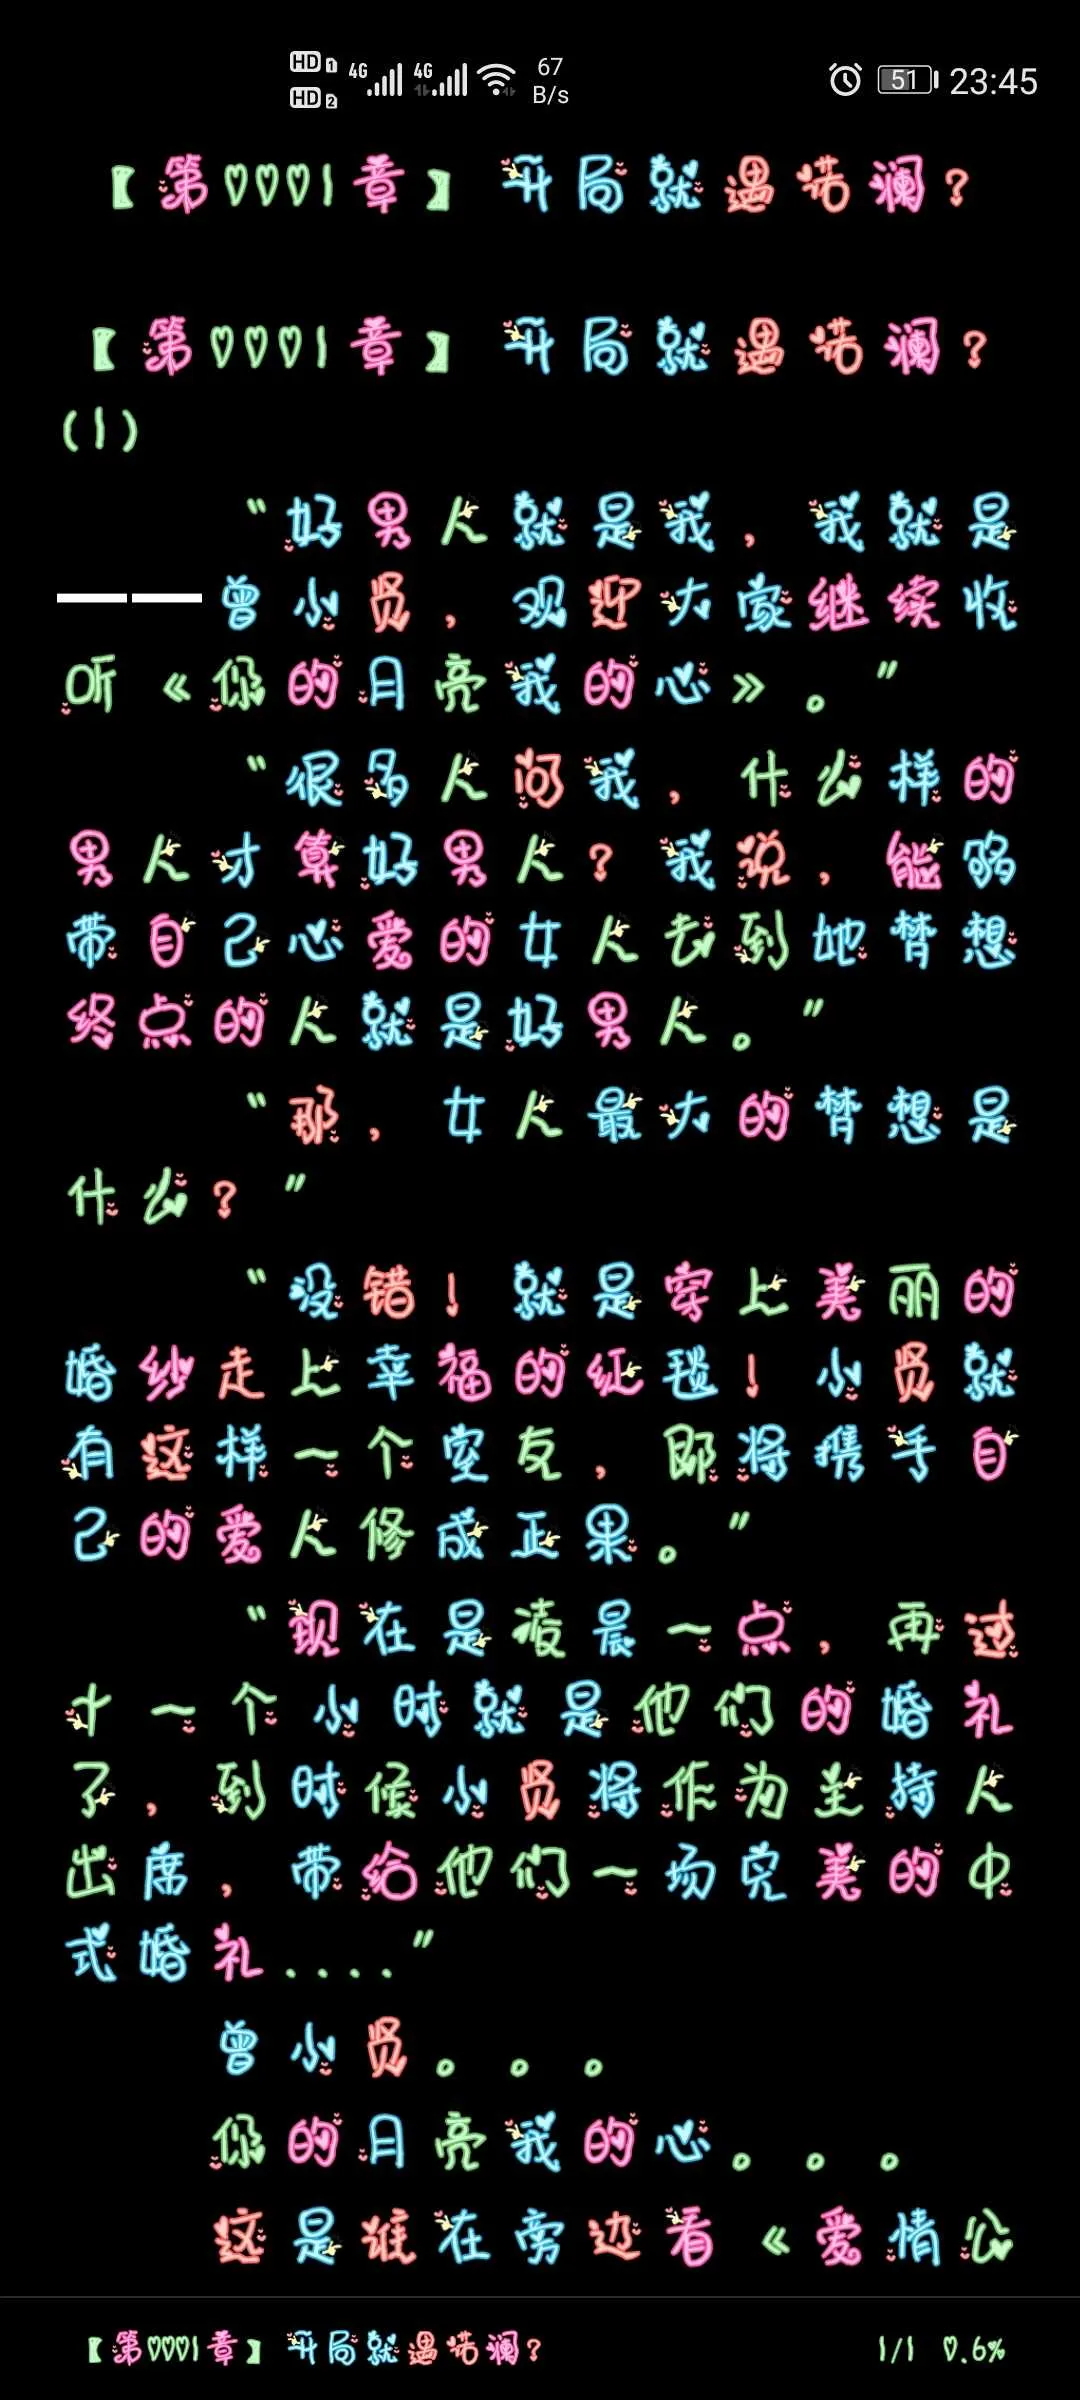 HD 1 4G 4G 67
HD 2 B/s 51 23:45
【第0001章】 开局就遇诺澜？
【第0001章】 开局就遇诺澜？
(1)
“好男人就是我，我就是
——曾小贤，欢迎大家继续收
听《你的月亮我的心》。”
“很多人问我，什么样的
男人才算好男人？我说，能够
带自己心爱的女人去到她梦想
终点的人就是好男人。”
“那，女人最大的梦想是
什么？”
“没错！就是穿上美丽的
婚纱走上幸福的红毯！小贤就
有这样一个室友，即将携手自
己的爱人修成正果。”
“现在是凌晨一点，再过
十一个小时就是他们的婚礼
了，到时候小贤将作为主持人
出席，带给他们一场完美的中
式婚礼....”
曾小贤。。。
你的月亮我的心。。。
这是谁在旁边看《爱情公
【第0001章】 开局就遇诺澜？ 1/1 0.6%